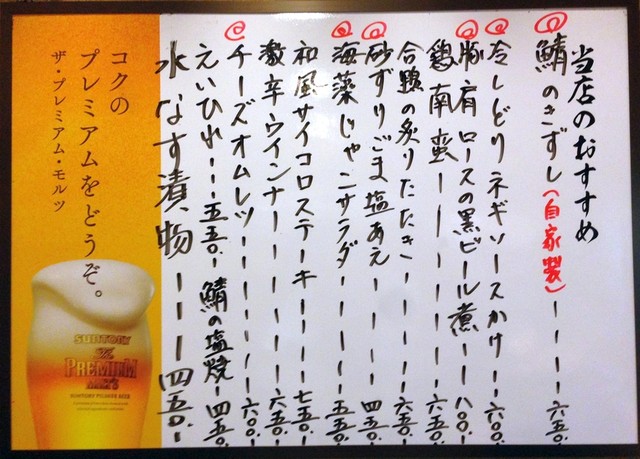 当店のおすすめ
鯖のきずし(自家製)ーーーー六五〇.
冷しどりネギソースかけーー六〇〇.
豚肩ロースの黒ビール煮ーー八〇〇.
鶏南蛮ーーーーーー六五〇.
合鴨の炙りたたきーーーー六五〇.
砂ずりごま塩あえーーーー四五〇.
海藻じゃこサラダーーーー五五〇.
和風サイコロステーキーーー七五〇.
激辛ウインナーーーーーー六五〇.
チーズオムレツーーーーー六〇〇.
えいひれーー五五〇. 鯖の塩焼ー四五〇.
水なす漬物ーーーー四五〇.
コクの
プレミアムをどうぞ。
ザ・プレミアム・モルツ
SUNTORY
THE
PREMIUM
MALT'S
SUNTORY PILSNER BEER